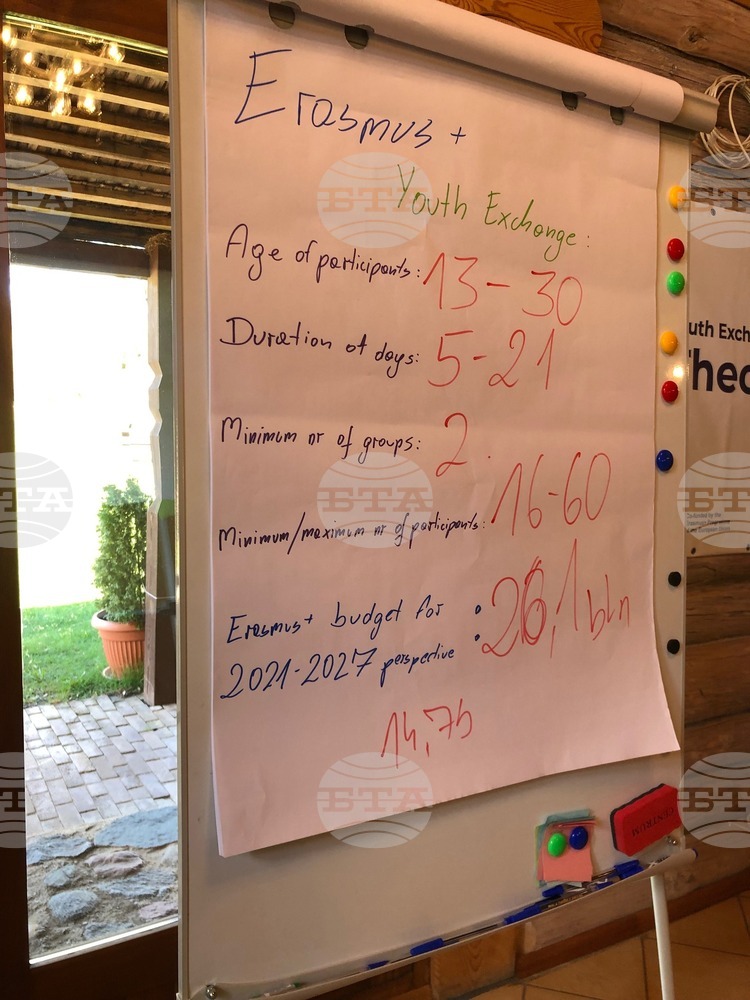 Erasmus +
Youth Exchange:
Age of participants: 13 - 30
Duration of days: 5-21
Minimum nr of groups: 2
Minimum/maximum nr of participants: 16-60
Erasmus+ budget for
2021-2027 perspective : 26,1 bln
14,7b
uth Exch
Thec
CENTRUM
БТА
БТА
БТА
БТА
БТА
БТА
БТА
БТА
БТА